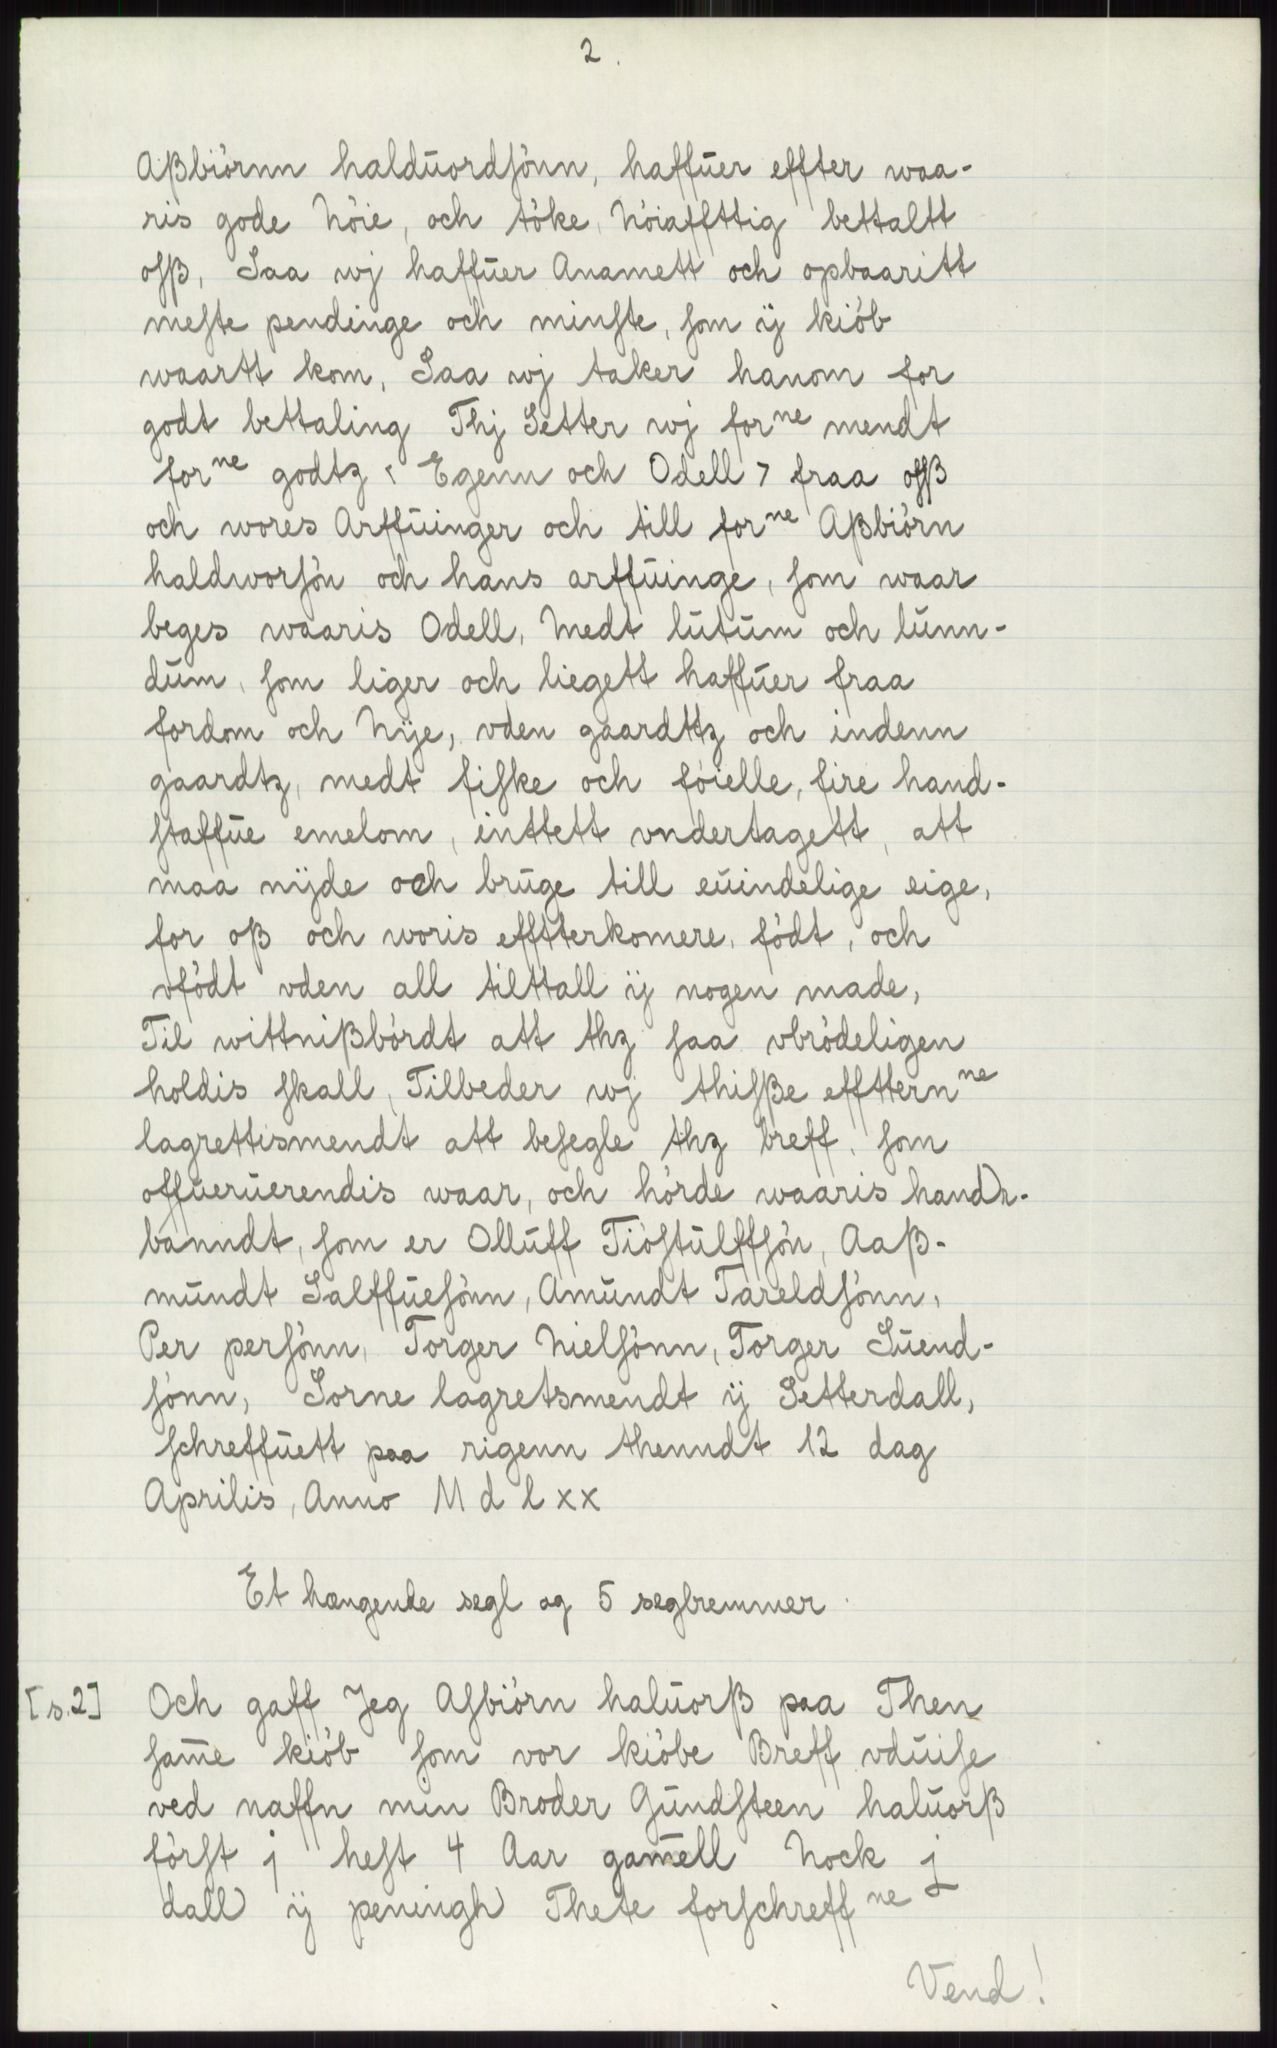 2.
Aßbiörnn halduordsönn, haffuer effter waa-
ris gode Nöie, och töke, Nöiaffttig bettaltt
ofß, Saa wj haffuer Anamett och opbaaritt
meste pendinge och minste, som ÿ kiöb
waartt kom, Saa wj taker hanom for
godt bettaling Thj Setter wj forne mendt
forne godtz < Egenn och Odell > fraa ofß
och wores Arffuinger och till forne Aßbiörn
haldworsön och hans arffuinge, som waar
beges waaris Odell, Medt lutum och lunn-
dum, som liger och liegett haffuer fraa
fordom och Nÿe, vden gaardttz och indenn
gaardtz, medt fiske och föielle, fire hand-
staffue emelom, inttett vndertagett, att
maa nÿde och bruge till euindelige eige,
for oß och woris efftterkomere, födt, och
vfödt vden all tilttall ÿ nogen made,
Til wittnißbördt att thz saa vbrödeligen
holdis skall, Tilbeder wj thisße effttern ne
lagrettismendt att besegle thz breff, som
offueruerendis waar, och hörde waaris handr-
banndt, som er Olluff Tiöstulffsön, Aaß-
mundt Salffuesönn, Amundt Tareldsönn,
Per persönn, Torger Nielsönn, Torger Suend-
sönn, Sorne lagretsmendt ÿ Setterdall,
schreffuett paa rigenn thenndt 12 dag
Aprilis, Anno M d l x x
Et hængende segl og 5 seglremmer.
[s.2] Och gaff Jeg Asbiörn haluorß paa Then
sam̄e kiöb som vor kiöbe Breff vduise
ved naffn min Broder Gundsteen haluorß
först j hest 4 Aar gam̄ell Nock j
dall ÿ peningh Thete forschreff ne
Vend!